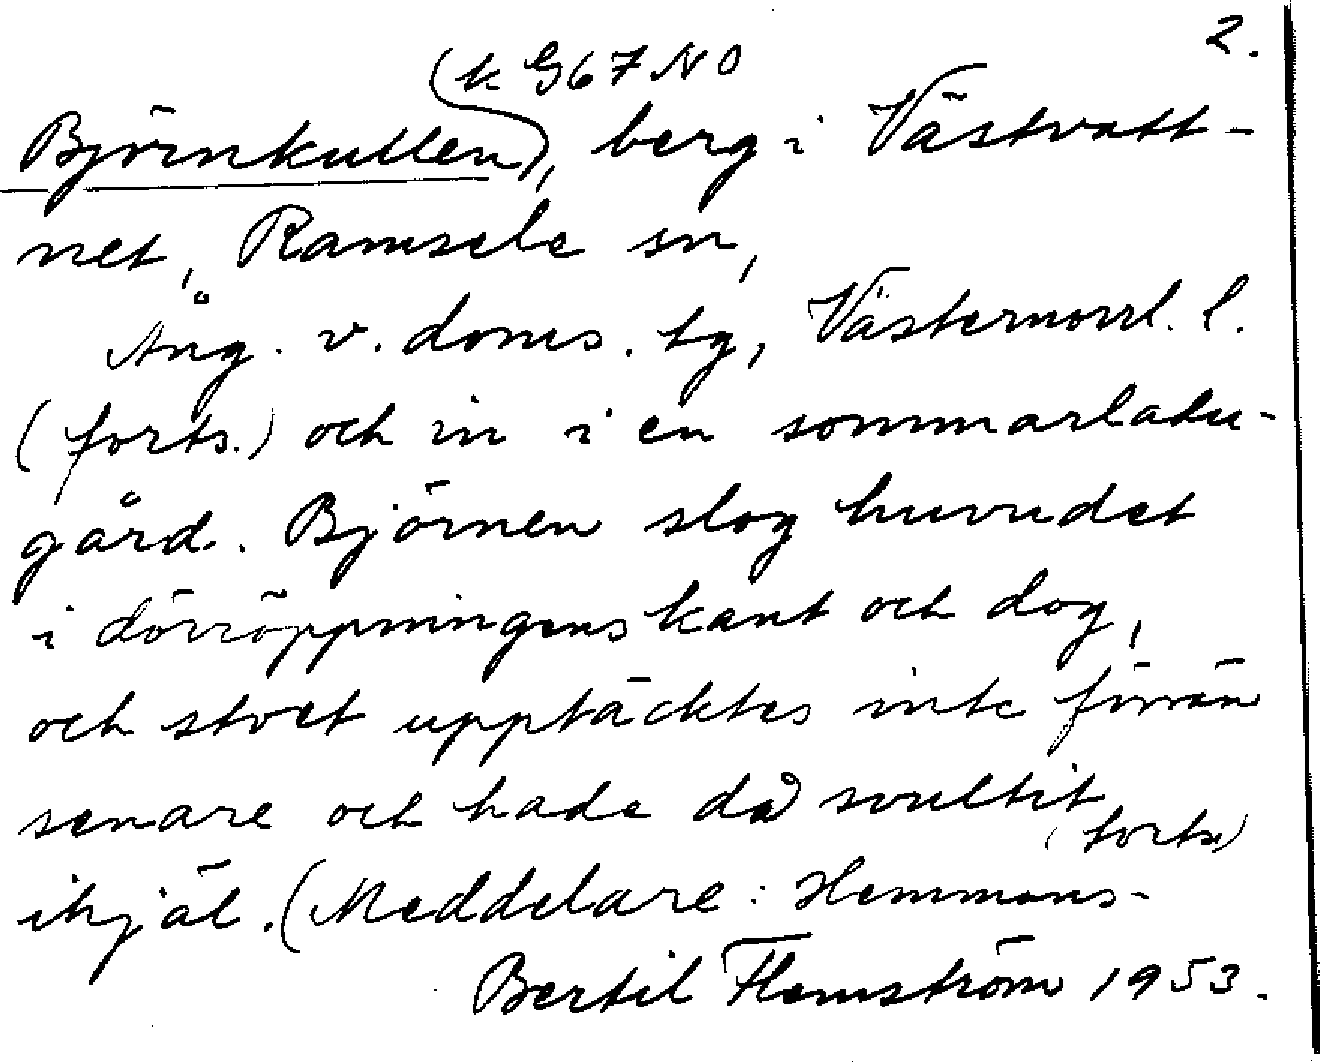 2.
(k G67 NO
Björnkullen), berg i Västvatt-
net, Ramsele sn,
Ång. v. doms. tg, Västernorrl. l.
(forts.) och in i en sommarladu-
gård. Björnen slog huvudet
i dörröppningens kant och dog,
och stoet upptäcktes inte förrän
senare och hade då svultit
(forts.)
ihjäl. (Meddelare: Hemmans-
Bertil Flemström 1953.